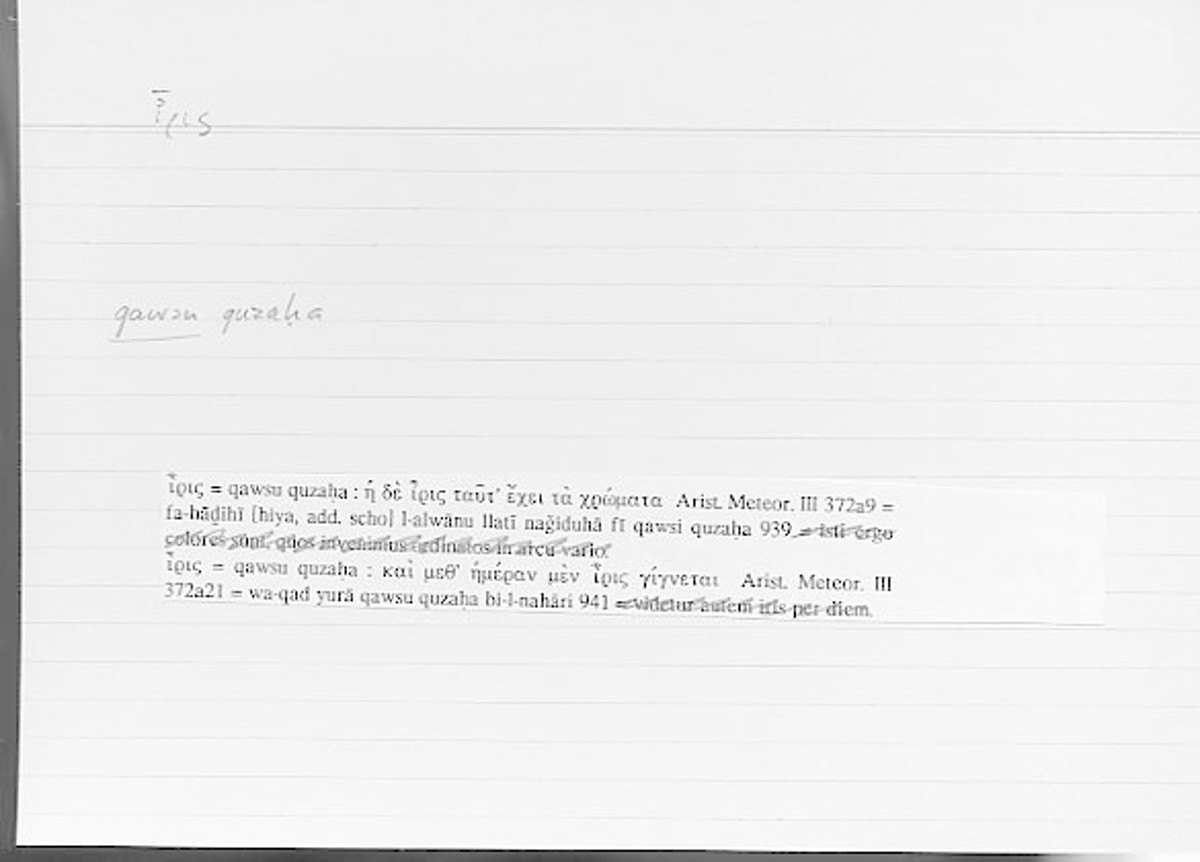 ἶρις
qawsu quzaḥa
ἶρις = qawsu quzaḥa : ἡ δὲ ἶρις ταῦτ' ἔχει τὰ χρώματα Arist. Meteor. III 372a9 =
fa-hāḏihī [hiya, add. scho] l-alwānu llatī naǧiduhā fī qawsi quzaḥa 939 = isti ergo
colores sunt, quos invenimus ordinatos in arcu vario.
ἶρις = qawsu quzaḥa : καὶ μεθ' ἡμέραν μὲν ἶρις γίγνεται Arist. Meteor. III
372a21 = wa-qad yurā qawsu quzaḥa bi-l-nahāri 941 = videtur autem iris per diem.